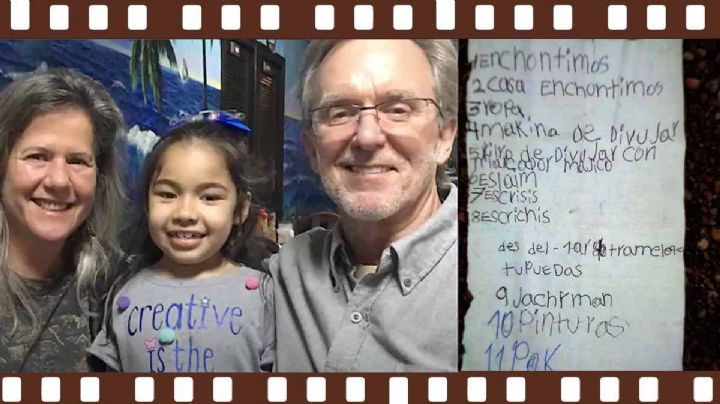 creative
is the
1 Enchontimos
2 casa Enchontimos
3 ropa
4 makina de Divujar
5 libro de Divujar con
marcador majico
6 Eslaim
7 Escrisis
8 Escrichis
des del-1ar8
tuPuedas
9 Jachiman
10 Pinturas
11 PoK